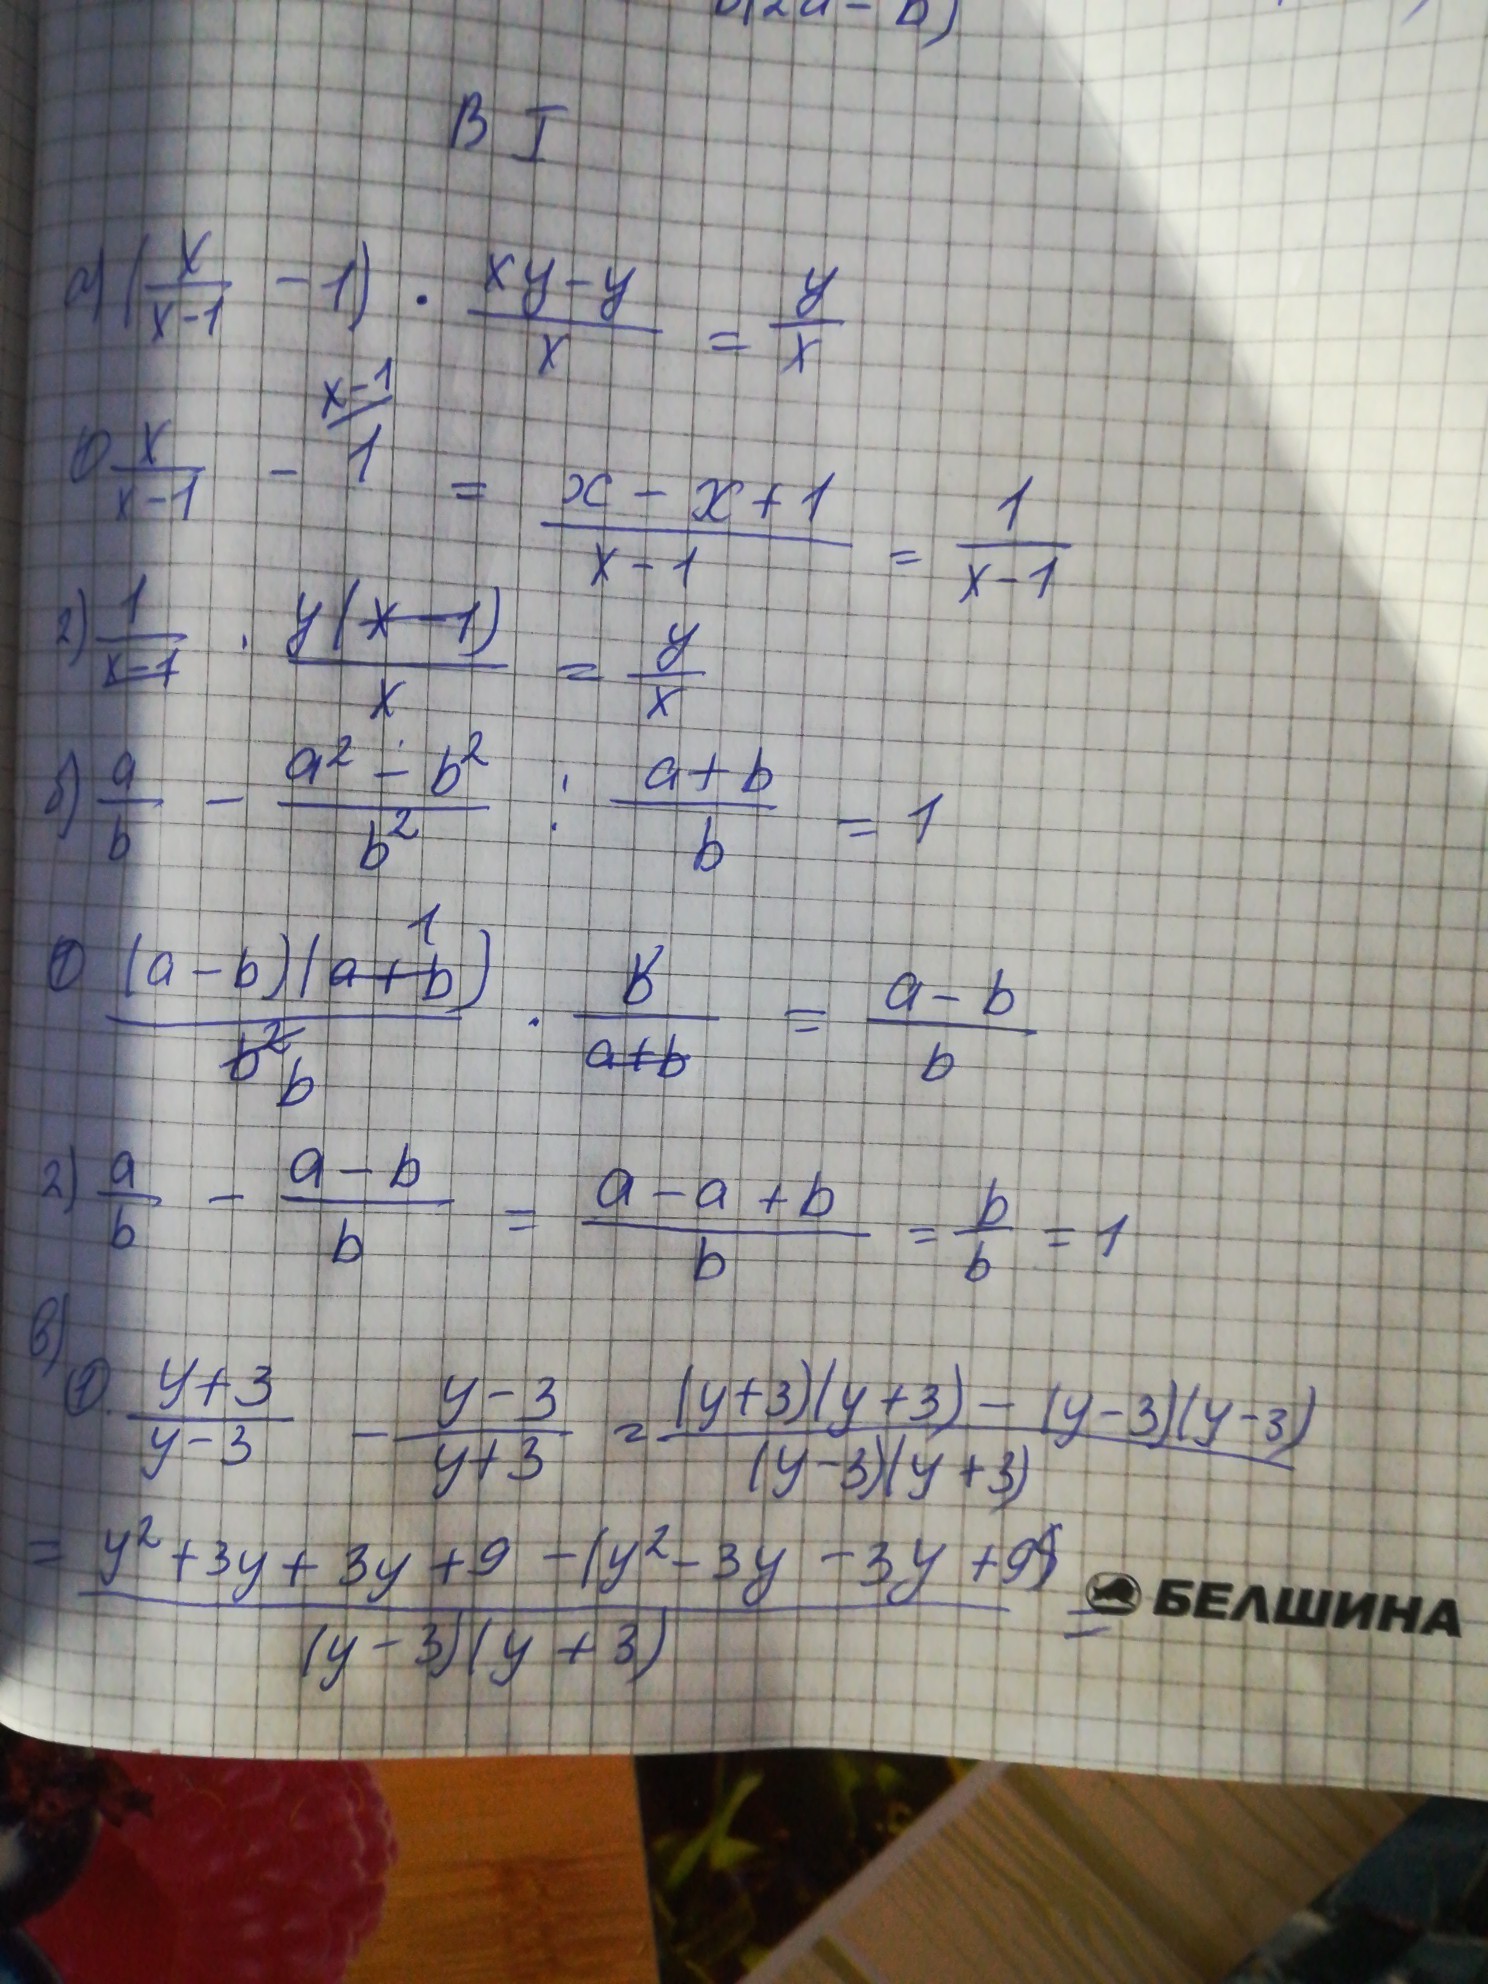 B I
а) (x/(x-1) - 1) · (xy-y)/x = y/x
1) x/(x-1) - 1^(x-1) = (x-x+1)/(x-1) = 1/(x-1)
2) 1/(x-1) · y(x-1)/x = y/x
б) a/b - (a²-b²)/b² : (a+b)/b = 1
1) (a-b)(a+b) 1/b² b · b/(a+b) = (a-b)/b
2) a/b - (a-b)/b = (a-a+b)/b = b/b = 1
в)
1. (y+3)/(y-3) - (y-3)/(y+3) = ((y+3)(y+3) - (y-3)(y-3))/((y-3)(y+3))
= (y²+3y+3y+9-(y²-3y-3y+9))/((y-3)(y+3)) =
БЕЛШИНА